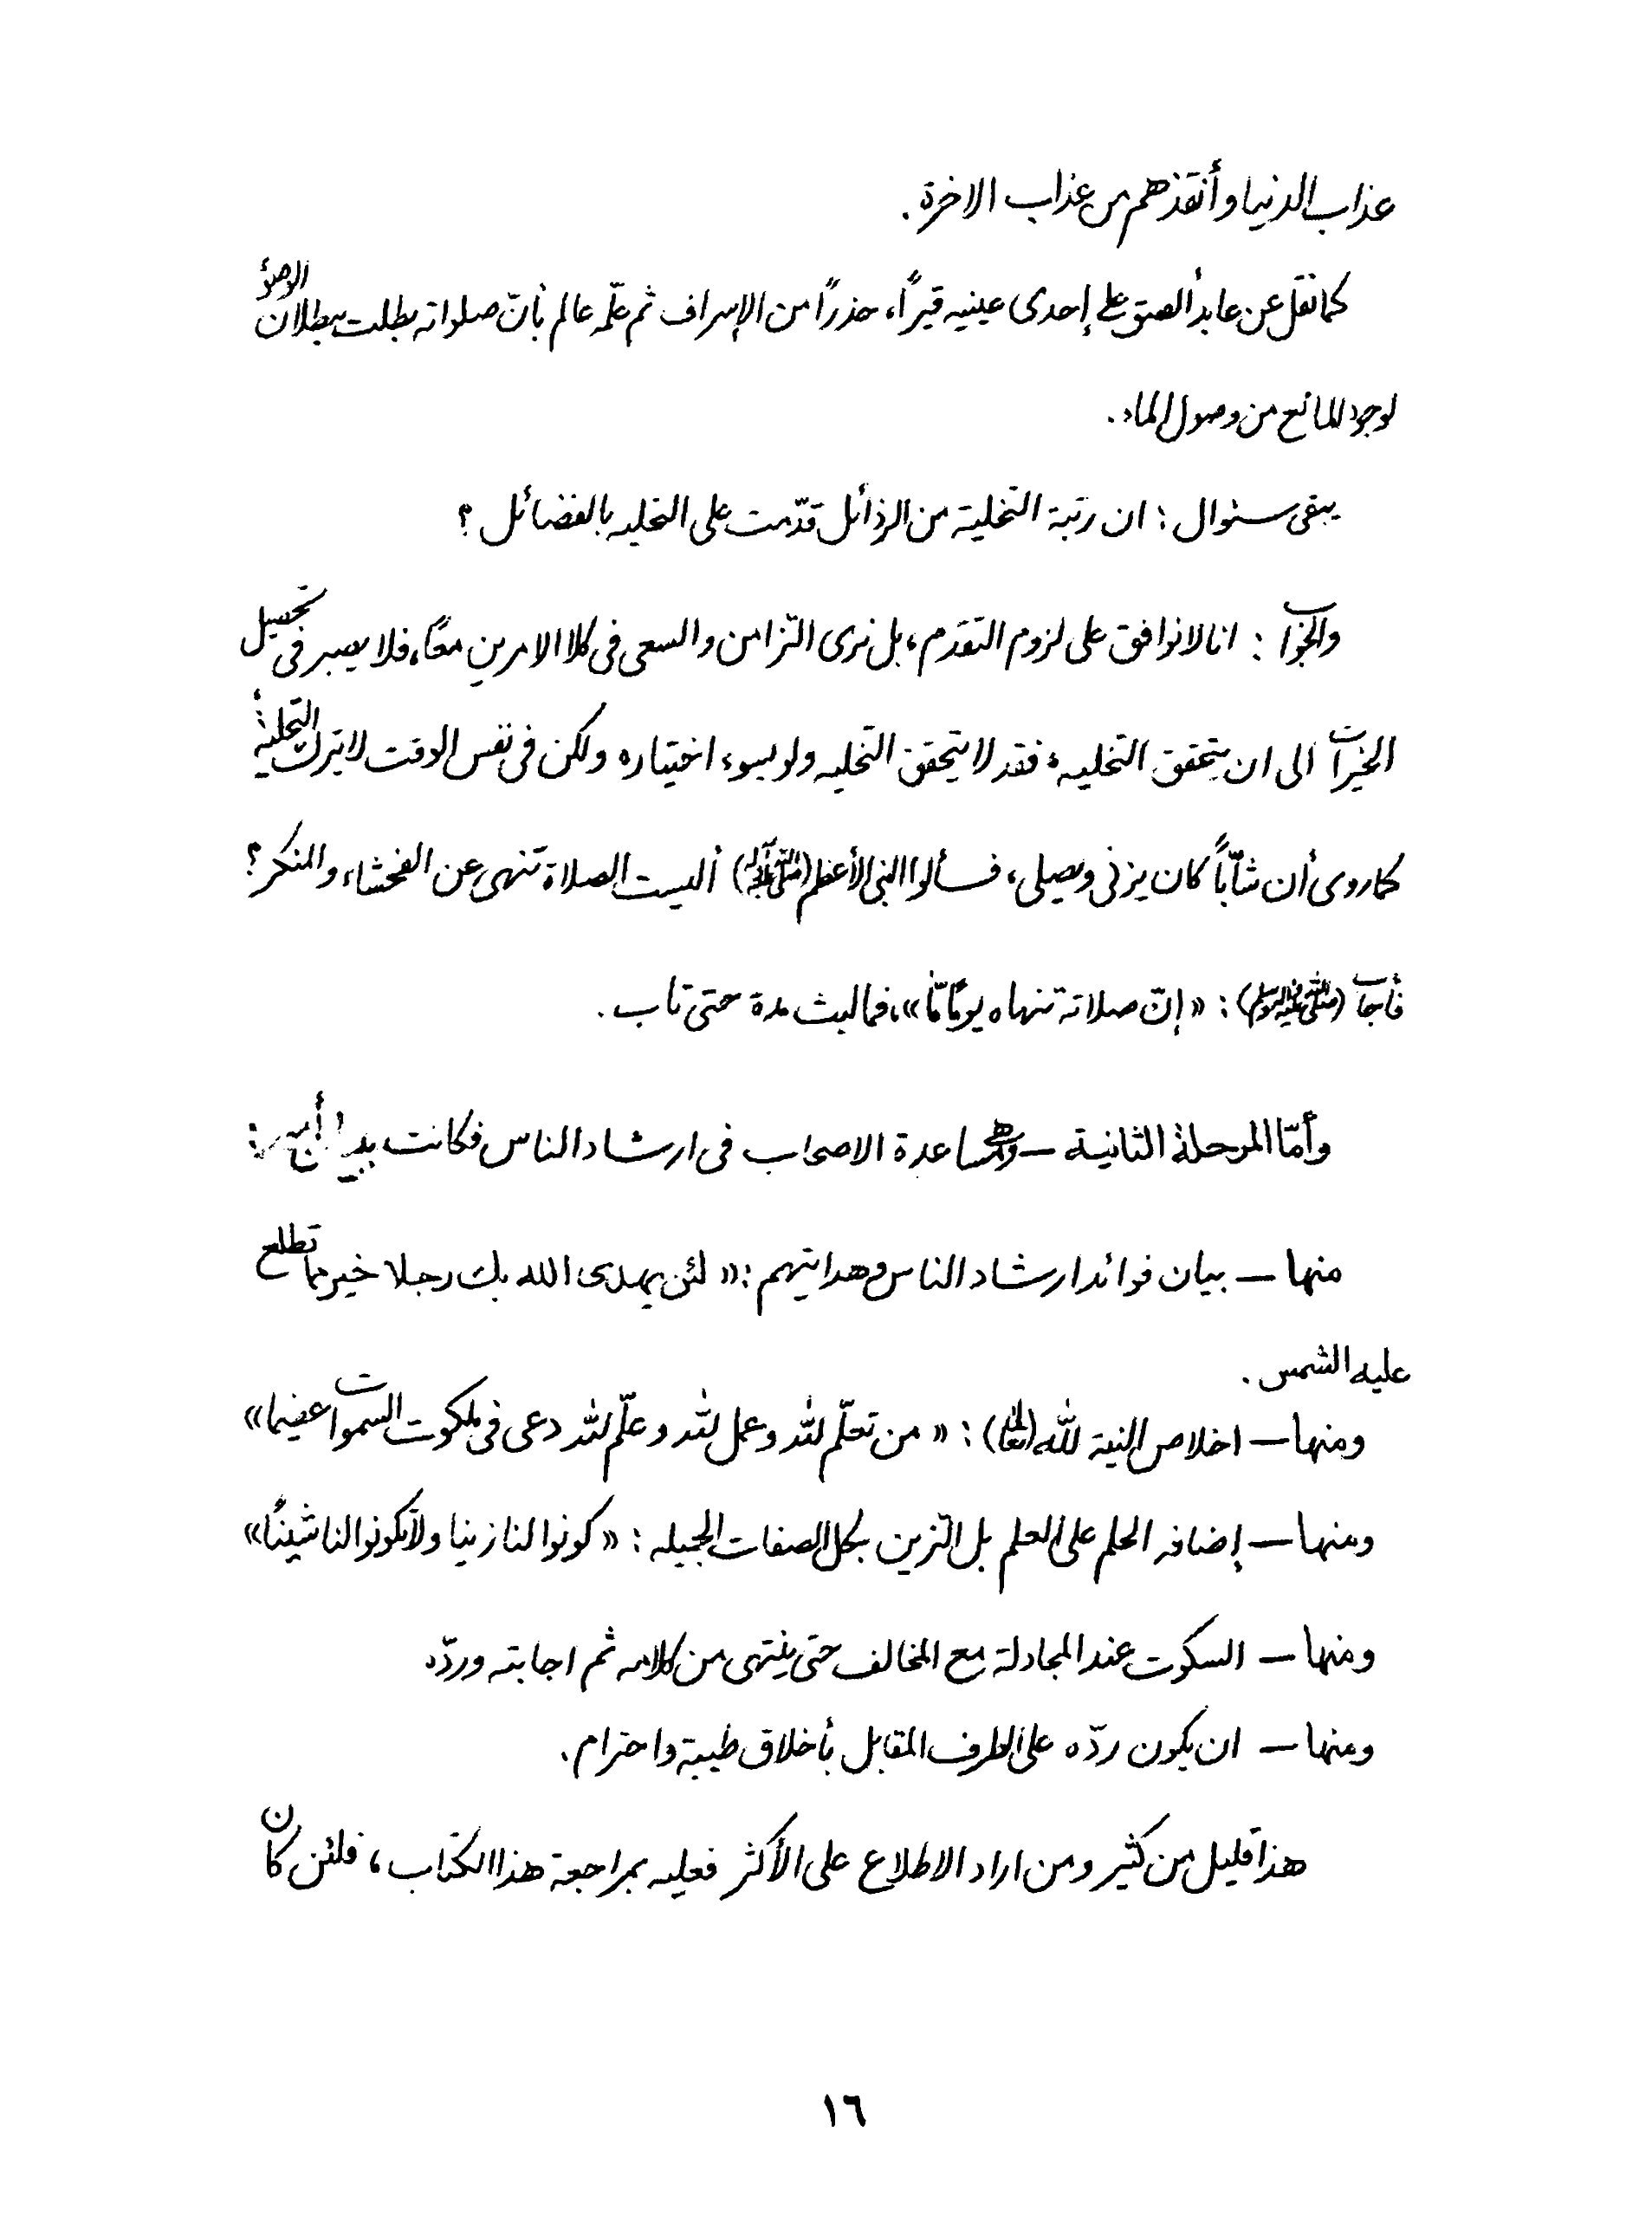 عذاب الدنيا وأنقذهم من عذاب الاخرة .
كما نقل عن عابد ألصق على إحدى عينيه قيرًا، حذرًا من الإسراف ثم علّمه عالم بأنّ صلواته بطلت ببطلان الوضوء
لوجود المانع من وصول الماء .
يبقى سئوال : ان رتبة التخلية من الرذائل قدّمت على التحليه بالفضائل ؟
والجواب : انا لا نوافق على لزوم التقدم، بل نرى التّزامن والسعى فى كلا الامرين معًا، فلا يصبر فى تحصيل
الخيرات الى ان يتحقق التخليه، فقد لا يتحقق التخليه ولو بسوء اختياره ولكن فى نفس الوقت لا يترك التحلية
كما روى أن شابّاً كان يزنى ويصلى، فسألوا النبى الأعظم (صلى الله عليه وآله) أليست الصلاة تنهى عن الفحشاء والمنكر ؟
فأجاب (صلى الله عليه وآله وسلم) : « إنّ صلاته تنهاه يومًا مّا »، فما لبث مدة حتى تاب .
وأمّا المرحلة الثانية — وهى مساعدة الاصحاب فى ارشاد الناس فكانت
منها — بيان فوائد ارشاد الناس وهدايتهم : « لئن يهدى الله بك رجلا خير مما تطلع
عليه الشمس .
ومنها — اخلاص النية لله (تعالى) : « من تعلّم لله وعمل لله وعلّم لله دعى فى ملكوت السموات عضيما »
ومنها — إضافه الحلم على العلم بل التّزين بكل الصفات الجميله : « كونوا لنا زينا ولا تكونوا لنا شينًا »
ومنها — السكوت عند المجادلة مع المخالف حتى ينتهى من كلامه ثم اجابته وردّه
ومنها — ان يكون ردّه على الطرف المقابل بأخلاق طيبة واحترام .
هذا قليل من كثير ومن اراد الاطلاع على الأكثر فعليه بمراجعة هذا الكتاب ، فلئن كان
١٦